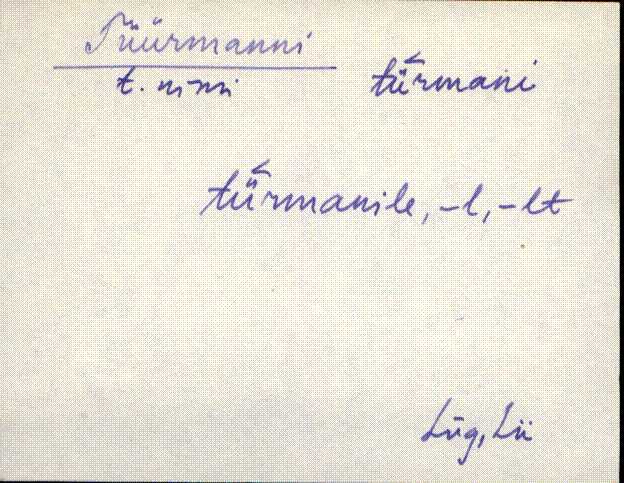 Tüürmanni
t. nimi türmani
türmanile, -l, -lt
Lüg, Lii